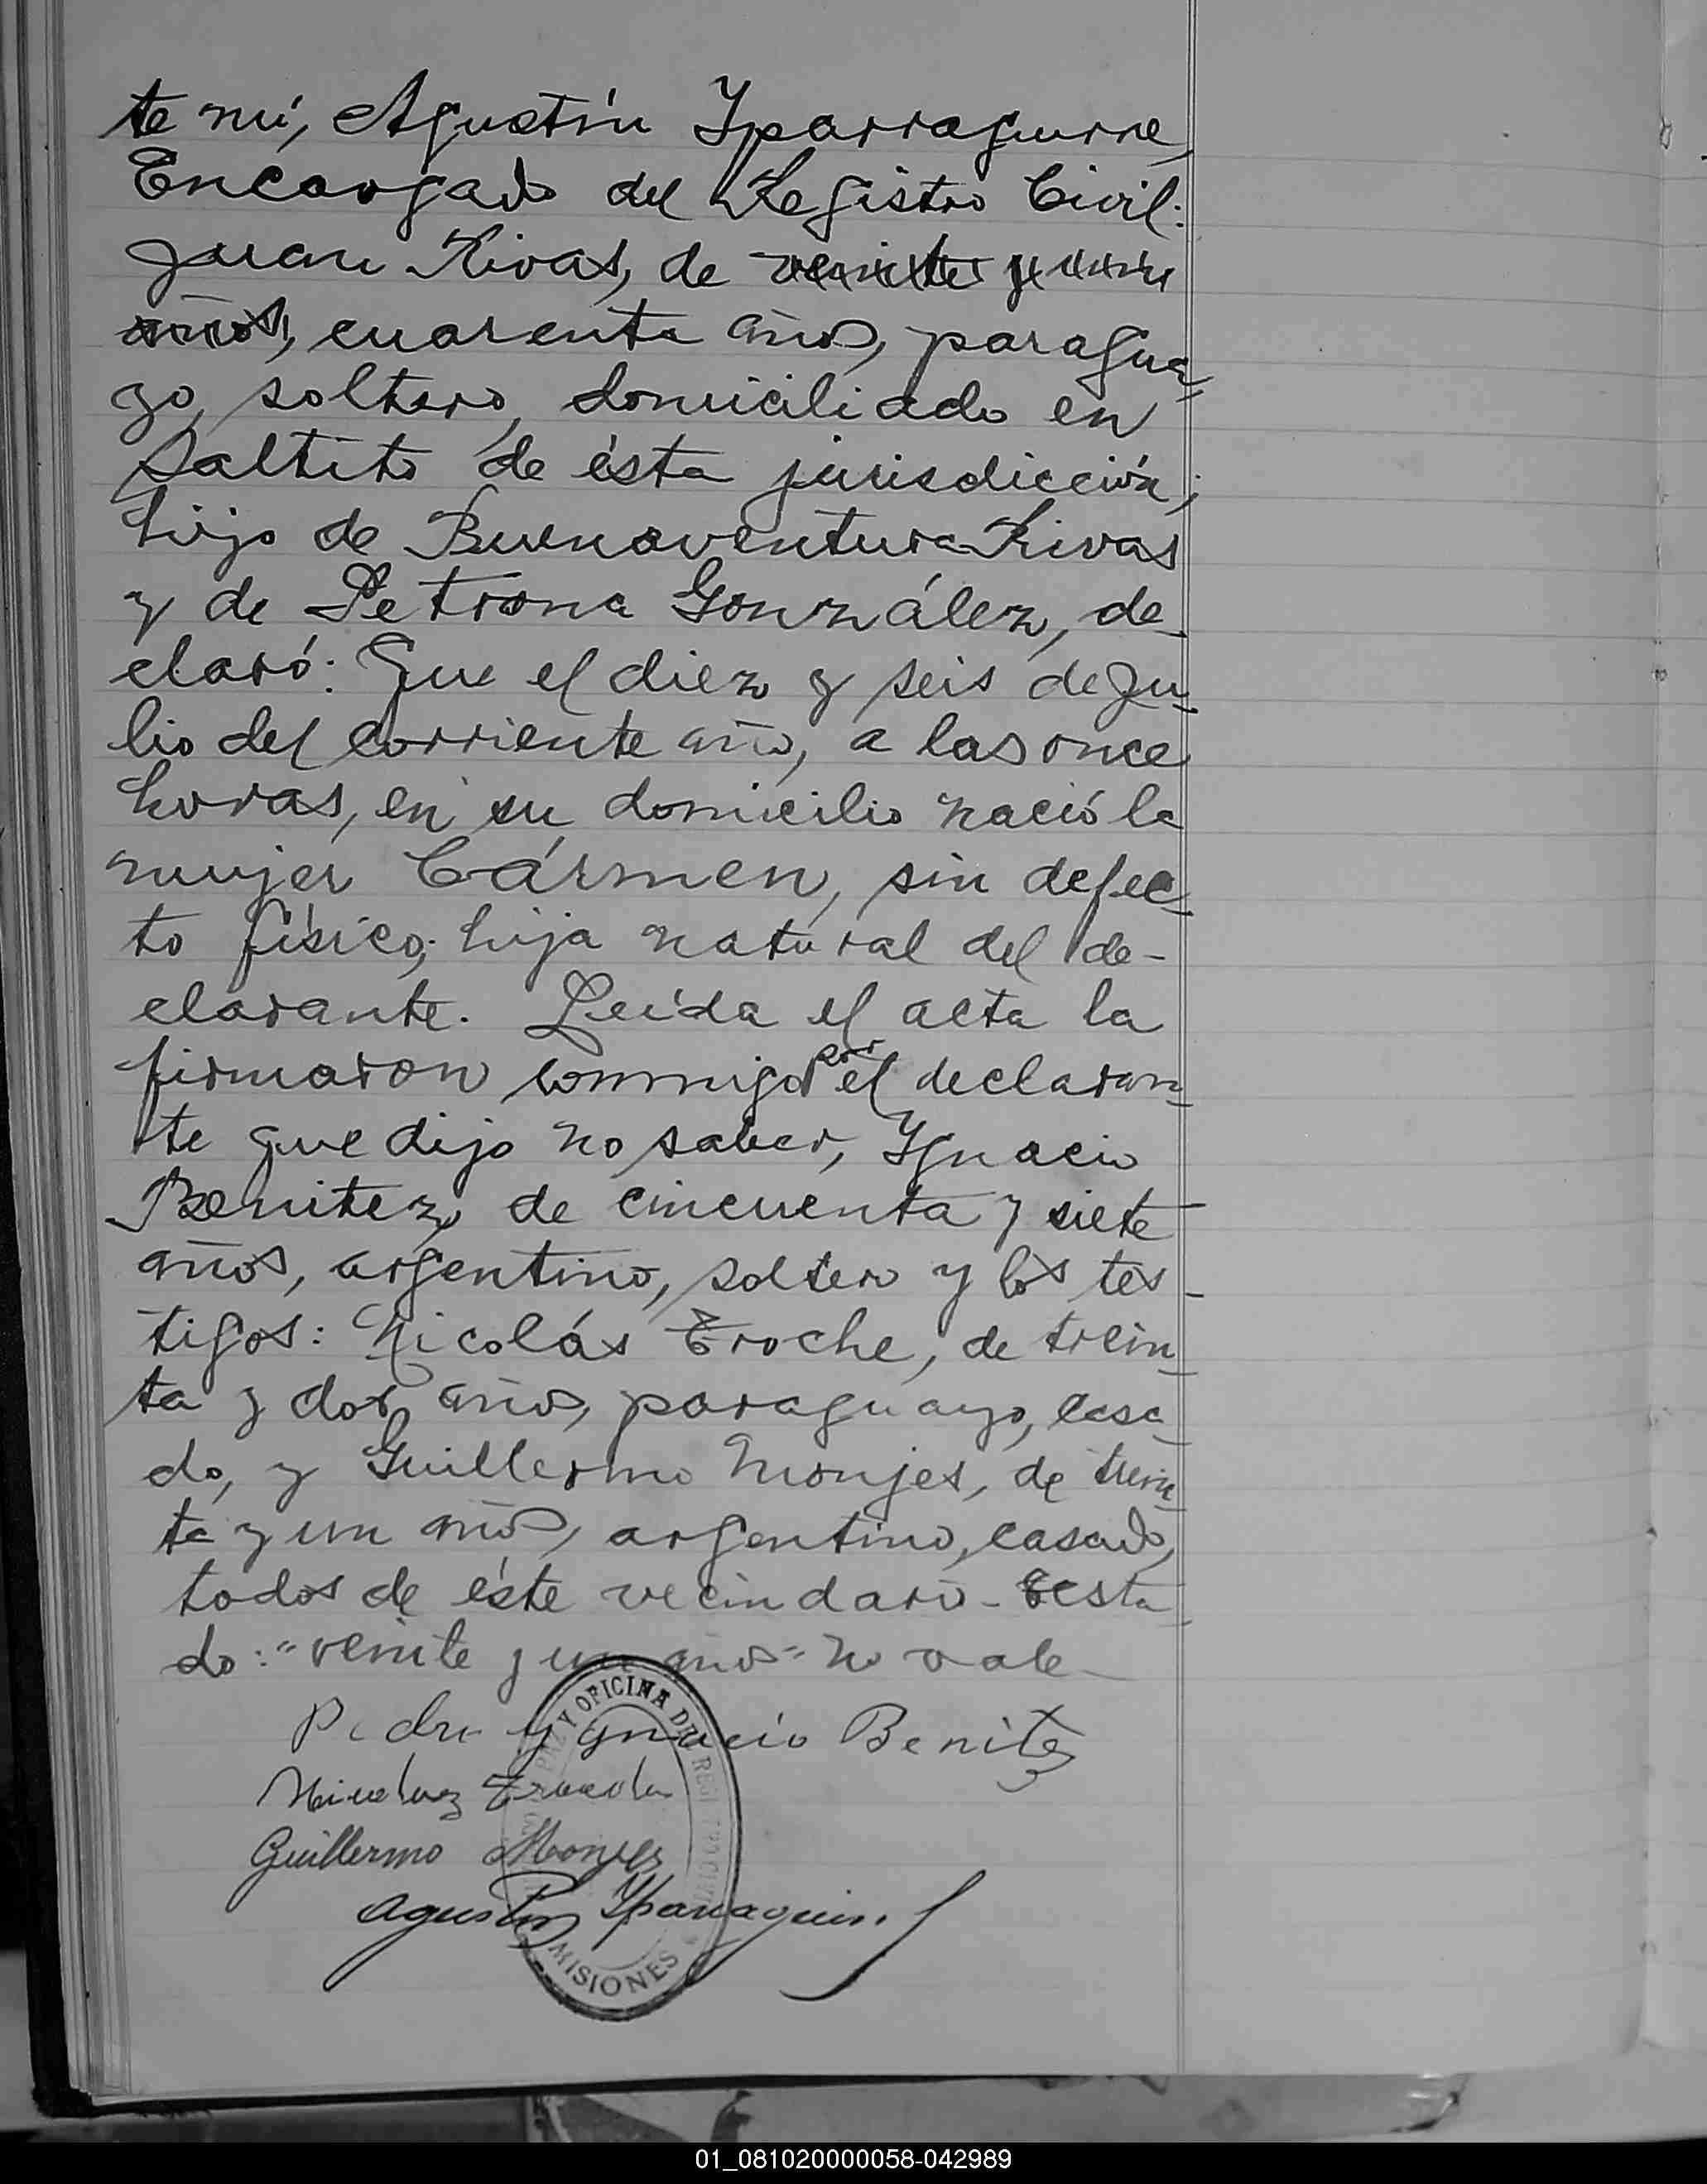 te mí, Agustín Yparraguirre,
Encargado del Registro Civil:
Juan Rivas, de veinte y un
años, cuarenta años, paragua-
yo, soltero, domiciliado en
Saltito de ésta jurisdicción;
hijo de Buenaventura Rivas
y de Petrona González, de-
claró: Que el diez y seis de Ju-
lio del corriente año, a las once
horas, en su domicilio nació la
mujer Cármen, sin defec-
to físico, hija natural del de-
clarante. Leída el acta la
firmaron conmigo por el declaran-
te que dijo no saber, Ygnacio
Benitez, de cincuenta y siete
años, argentino, soltero y los tes-
tigos: Nicolás Troche, de trein-
ta y dos años, paraguayo, casa-
do, y Guillermo Monjes, de trein-
ta y un años, argentino, casado,
todos de éste vecindario - Testa-
do: "veinte y un años" no vale -
Pedro Ygnacio Benitez
Nicolaz
Guillermo Monjes
Agustín Yparraguirre
PAZ Y OFICINA DEL REGISTRO CIVIL
MISIONES
01_081020000058-042989